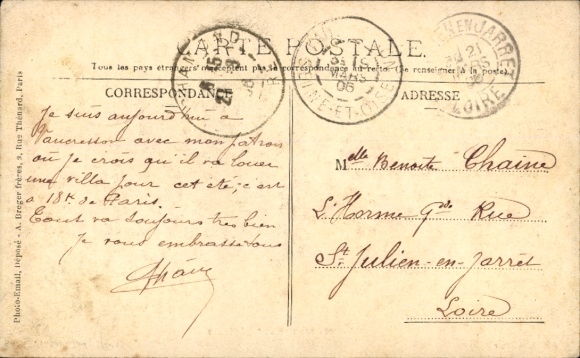 CARTE POSTALE
Tous les pays étrangers n'acceptent pas la correspondance au recto. (Se renseigner à la poste).
CORRESPONDANCE
ADRESSE
Je suis aujourd'hui a
Vaucresson avec mon patron
ou je crois qu'il va louer
une villa pour cet été, c est
a 18k de Paris.
Tout va toujours tres bien
Je vous embrasse tous
Melle Benoite Chaine
L'Horme Gde Rue
St Julien-en-Jarret
Loire
Photo-Email, Déposé - A. Breger frères, 9, Rue Thénard, Paris
SEINE-ET-OISE
MARS
06
EN JARRET
21
LOIRE